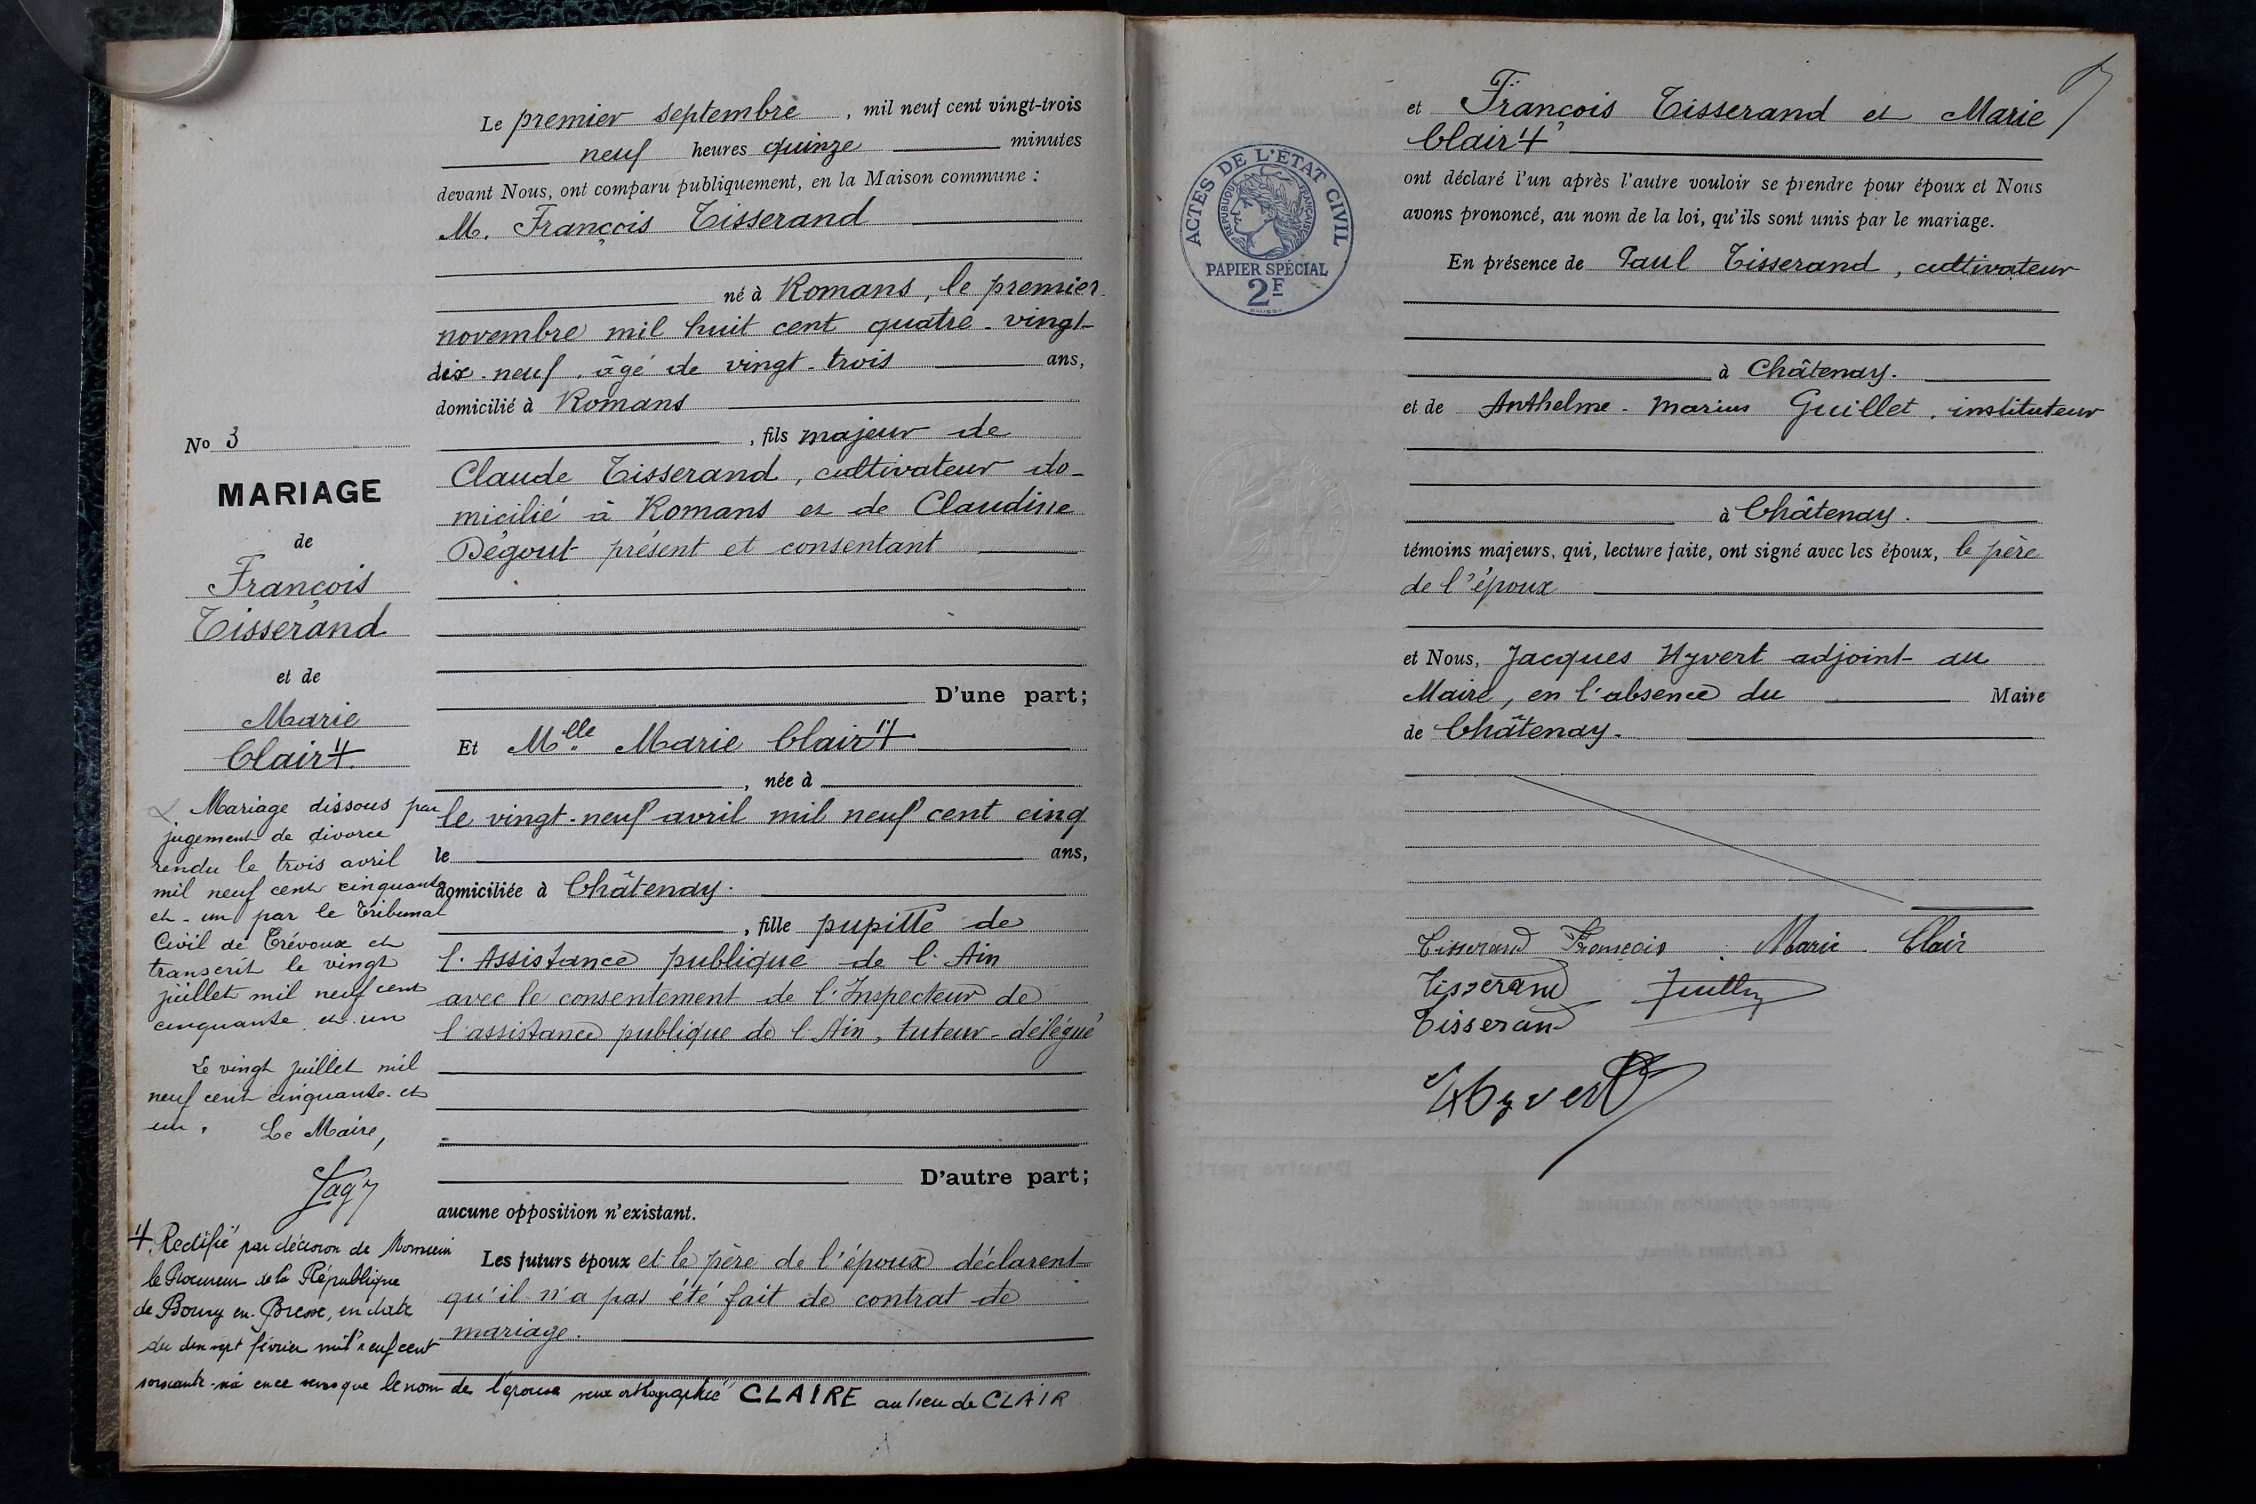 Le premier septembre, mil neuf cent vingt-trois
neuf heures quinze minutes
devant Nous, ont comparu publiquement, en la Maison commune :
M. François Tisserand
né à Romans, le premier
novembre mil huit cent quatre-vingt-
dix-neuf, âgé de vingt-trois ans,
domicilié à Romans
, fils majeur de
Claude Tisserand, cultivateur do-
micilié à Romans et de Claudine
Dégout présent et consentant
D'une part;
Et Mlle Marie Clair 4
, née à
le vingt-neuf avril mil neuf cent cinq
le ans,
domiciliée à Châtenay.
, fille pupille de
l'Assistance publique de l'Ain
avec le consentement de l'Inspecteur de
l'assistance publique de l'Ain, tuteur-délégué
D'autre part;
aucune opposition n'existant.
Les futurs époux et le père de l'époux déclarent
qu'il n'a pas été fait de contrat de
mariage.
No 3
MARIAGE
de
François
Tisserand
et de
Marie
Clair 4.
Mariage dissous par
jugement de divorce
rendu le trois avril
mil neuf cent cinquante
et-un par le Tribunal
Civil de Trévoux et
transcrit le vingt
juillet mil neuf cent
cinquante et un
Le vingt juillet mil
neuf cent cinquante-et
un. Le Maire,
4. Rectifié par décision de Monsieur
le Procureur de la République
de Bourg en Bresse, en date
du dix sept février mil neuf cent
soixante-six en ce sens que le nom de l'épouse sera orthographié "CLAIRE au lieu de CLAIR
7
ACTES DE L'ÉTAT CIVIL
RÉPUBLIQUE FRANÇAISE
PAPIER SPÉCIAL
2F
et François Tisserand et Marie
Clair 4
ont déclaré l'un après l'autre vouloir se prendre pour époux et Nous
avons prononcé, au nom de la loi, qu'ils sont unis par le mariage.
En présence de Paul Tisserand, cultivateur
à Châtenay.
et de Anthelme-Marius Guillet, instituteur
à Châtenay.
témoins majeurs, qui, lecture faite, ont signé avec les époux, le père
de l'époux
et Nous, Jacques Hyvert adjoint au
Maire, en l'absence du Maire
de Châtenay.
Tisserand François Marie Clair
Tisserand Guillet
Tisserand
Hyvert